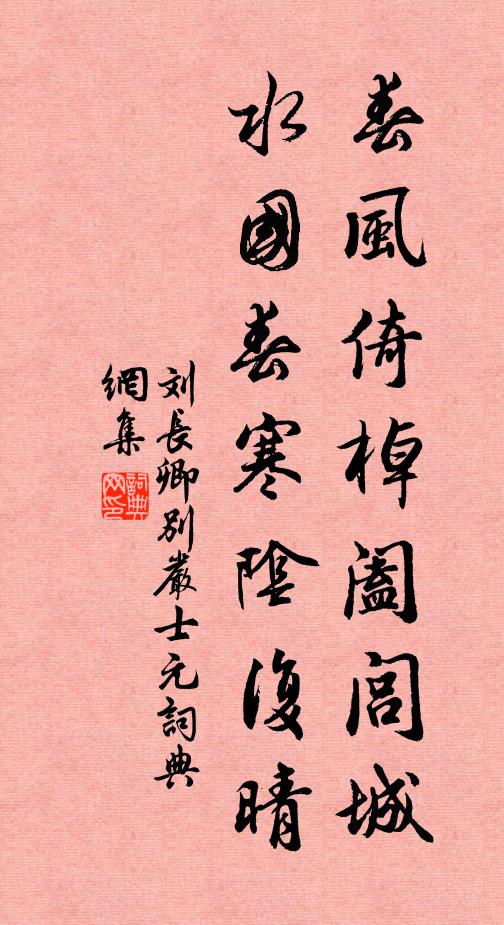 春風倚棹闔閭城
水國春寒陰復晴
刘長卿別嚴士元詞典
網集
詞典
网印